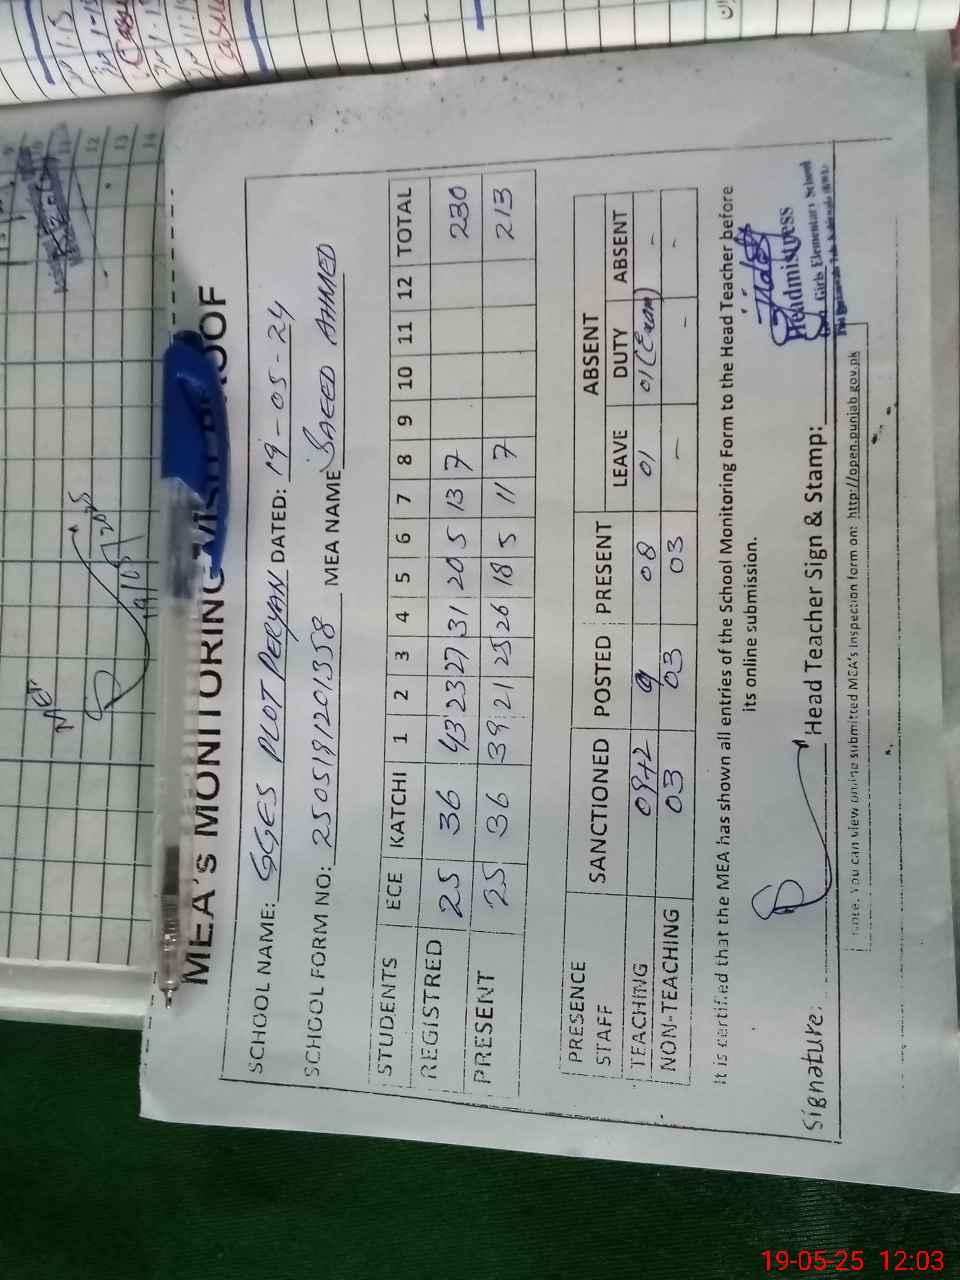 MEA'S MONITORING VISIT PROOF
SCHOOL NAME: GGES PLOT PERYAN DATED: 19-05-24
SCHOOL FORM NO: 2505191201358 MEA NAME SAEED AHMED
STUDENTS ECE KATCHI 1 2 3 4 5 6 7 8 9 10 11 12 TOTAL
REGISTRED 25 36 43 23 27 31 20 5 13 7 230
PRESENT 25 36 39 21 25 26 18 5 11 7 213
PRESENCE STAFF SANCTIONED POSTED PRESENT ABSENT
LEAVE DUTY ABSENT
TEACHING 09+2 9 08 01 01(Exam) -
NON-TEACHING 03 03 03 - - -
It is certified that the MEA has shown all entries of the School Monitoring Form to the Head Teacher before
its online submission.
Headmistress
Girls Elementary School
Signature: Head Teacher Sign & Stamp:
note. You can view online submitted MEA's Inspection form on: http://open.punjab.gov.pk
19/05/2025
12
13
14
19-05-25 12:03